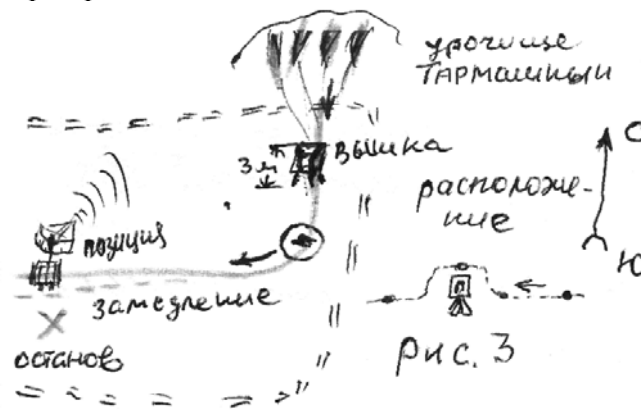 урочище
ТАРМАШНЫЙ
С
3 м
вышка
расположе-
ние
позиция
Ю
замедление
останов
Рис. 3